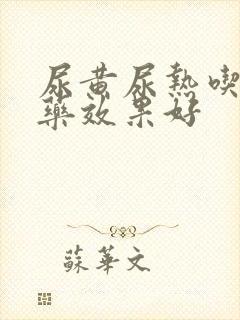 尿黄尿熱喫
藥效果好
蘇華文